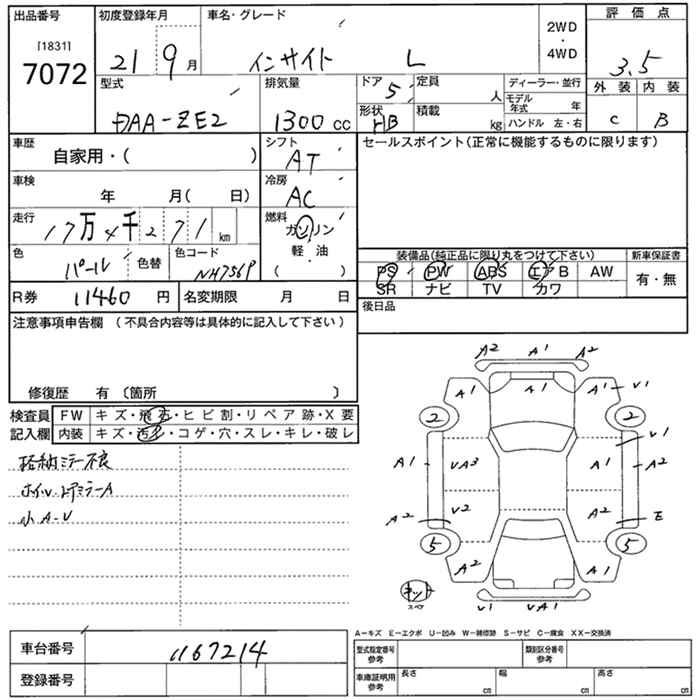 出品番号 初度登録年月 車名・グレード 2WD・4WD 評価点
[1831]
7072 21 9月 インサイト L 3.5
型式 排気量 ドア 5 定員 人 ディーラー・並行 外装 内装
DAA-ZE2 1300cc 形状 HB 積載 kg モデル年式 年 C B
ハンドル 左・右
車歴 自家用・( ) シフト AT セールスポイント(正常に機能するものに限ります)
車検 年 月( 日) 冷房 AC
走行 17万4千271km 燃料 ガソリン
軽・油
( )
色 パール 色替 色コード NH756P
装備品(純正品に限り丸をつけて下さい) 新車保証書
PS PW ABS エアB AW 有・無
SR ナビ TV カワ
R券 11460円 名変期限 月 日 後日品
注意事項申告欄 (不具合内容等は具体的に記入して下さい)
修復歴 有〔箇所 〕
検査員記入欄 FW キズ・飛石・ヒビ割・リペア跡・X要
内装 キズ・汚れ・コゲ・穴・スレ・キレ・破レ
格納ミラー不良
ホイル、ドアミラーA
小A-U
A2 A1 A2
A1 A1 A1 U1
2 2
U1
A1 UA3 A1 A2
A2 U2 A2 E
5 5
A2 A1
スペア
U1 UA1
A-キズ E-エクボ U-凹み W-補修跡 S-サビ C-腐食 XX-交換済
車台番号 1167214
登録番号
型式指定番号 参考 類別区分番号 参考
車庫証明用 参考 長さ cm 幅 cm 高さ cm